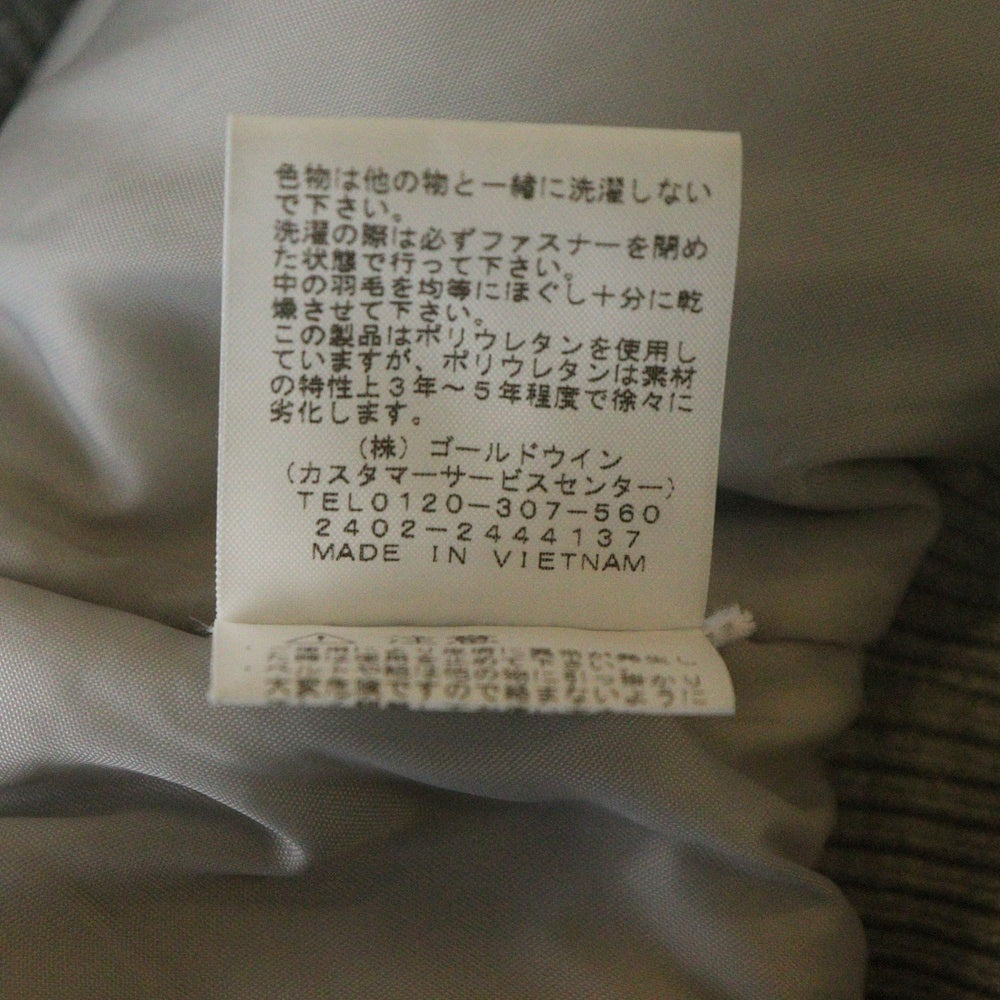 色物は他の物と一緒に洗濯しない
で下さい。
洗濯の際は必ずファスナーを閉め
た状態で行って下さい。
中の羽毛を均等にほぐし十分に乾
燥させて下さい。
この製品はポリウレタンを使用し
ていますが、ポリウレタンは素材
の特性上3年〜5年程度で徐々に
劣化します。
(株)ゴールドウイン
(カスタマーサービスセンター)
TEL0120-307-560
2402-2444137
MADE IN VIETNAM
注意